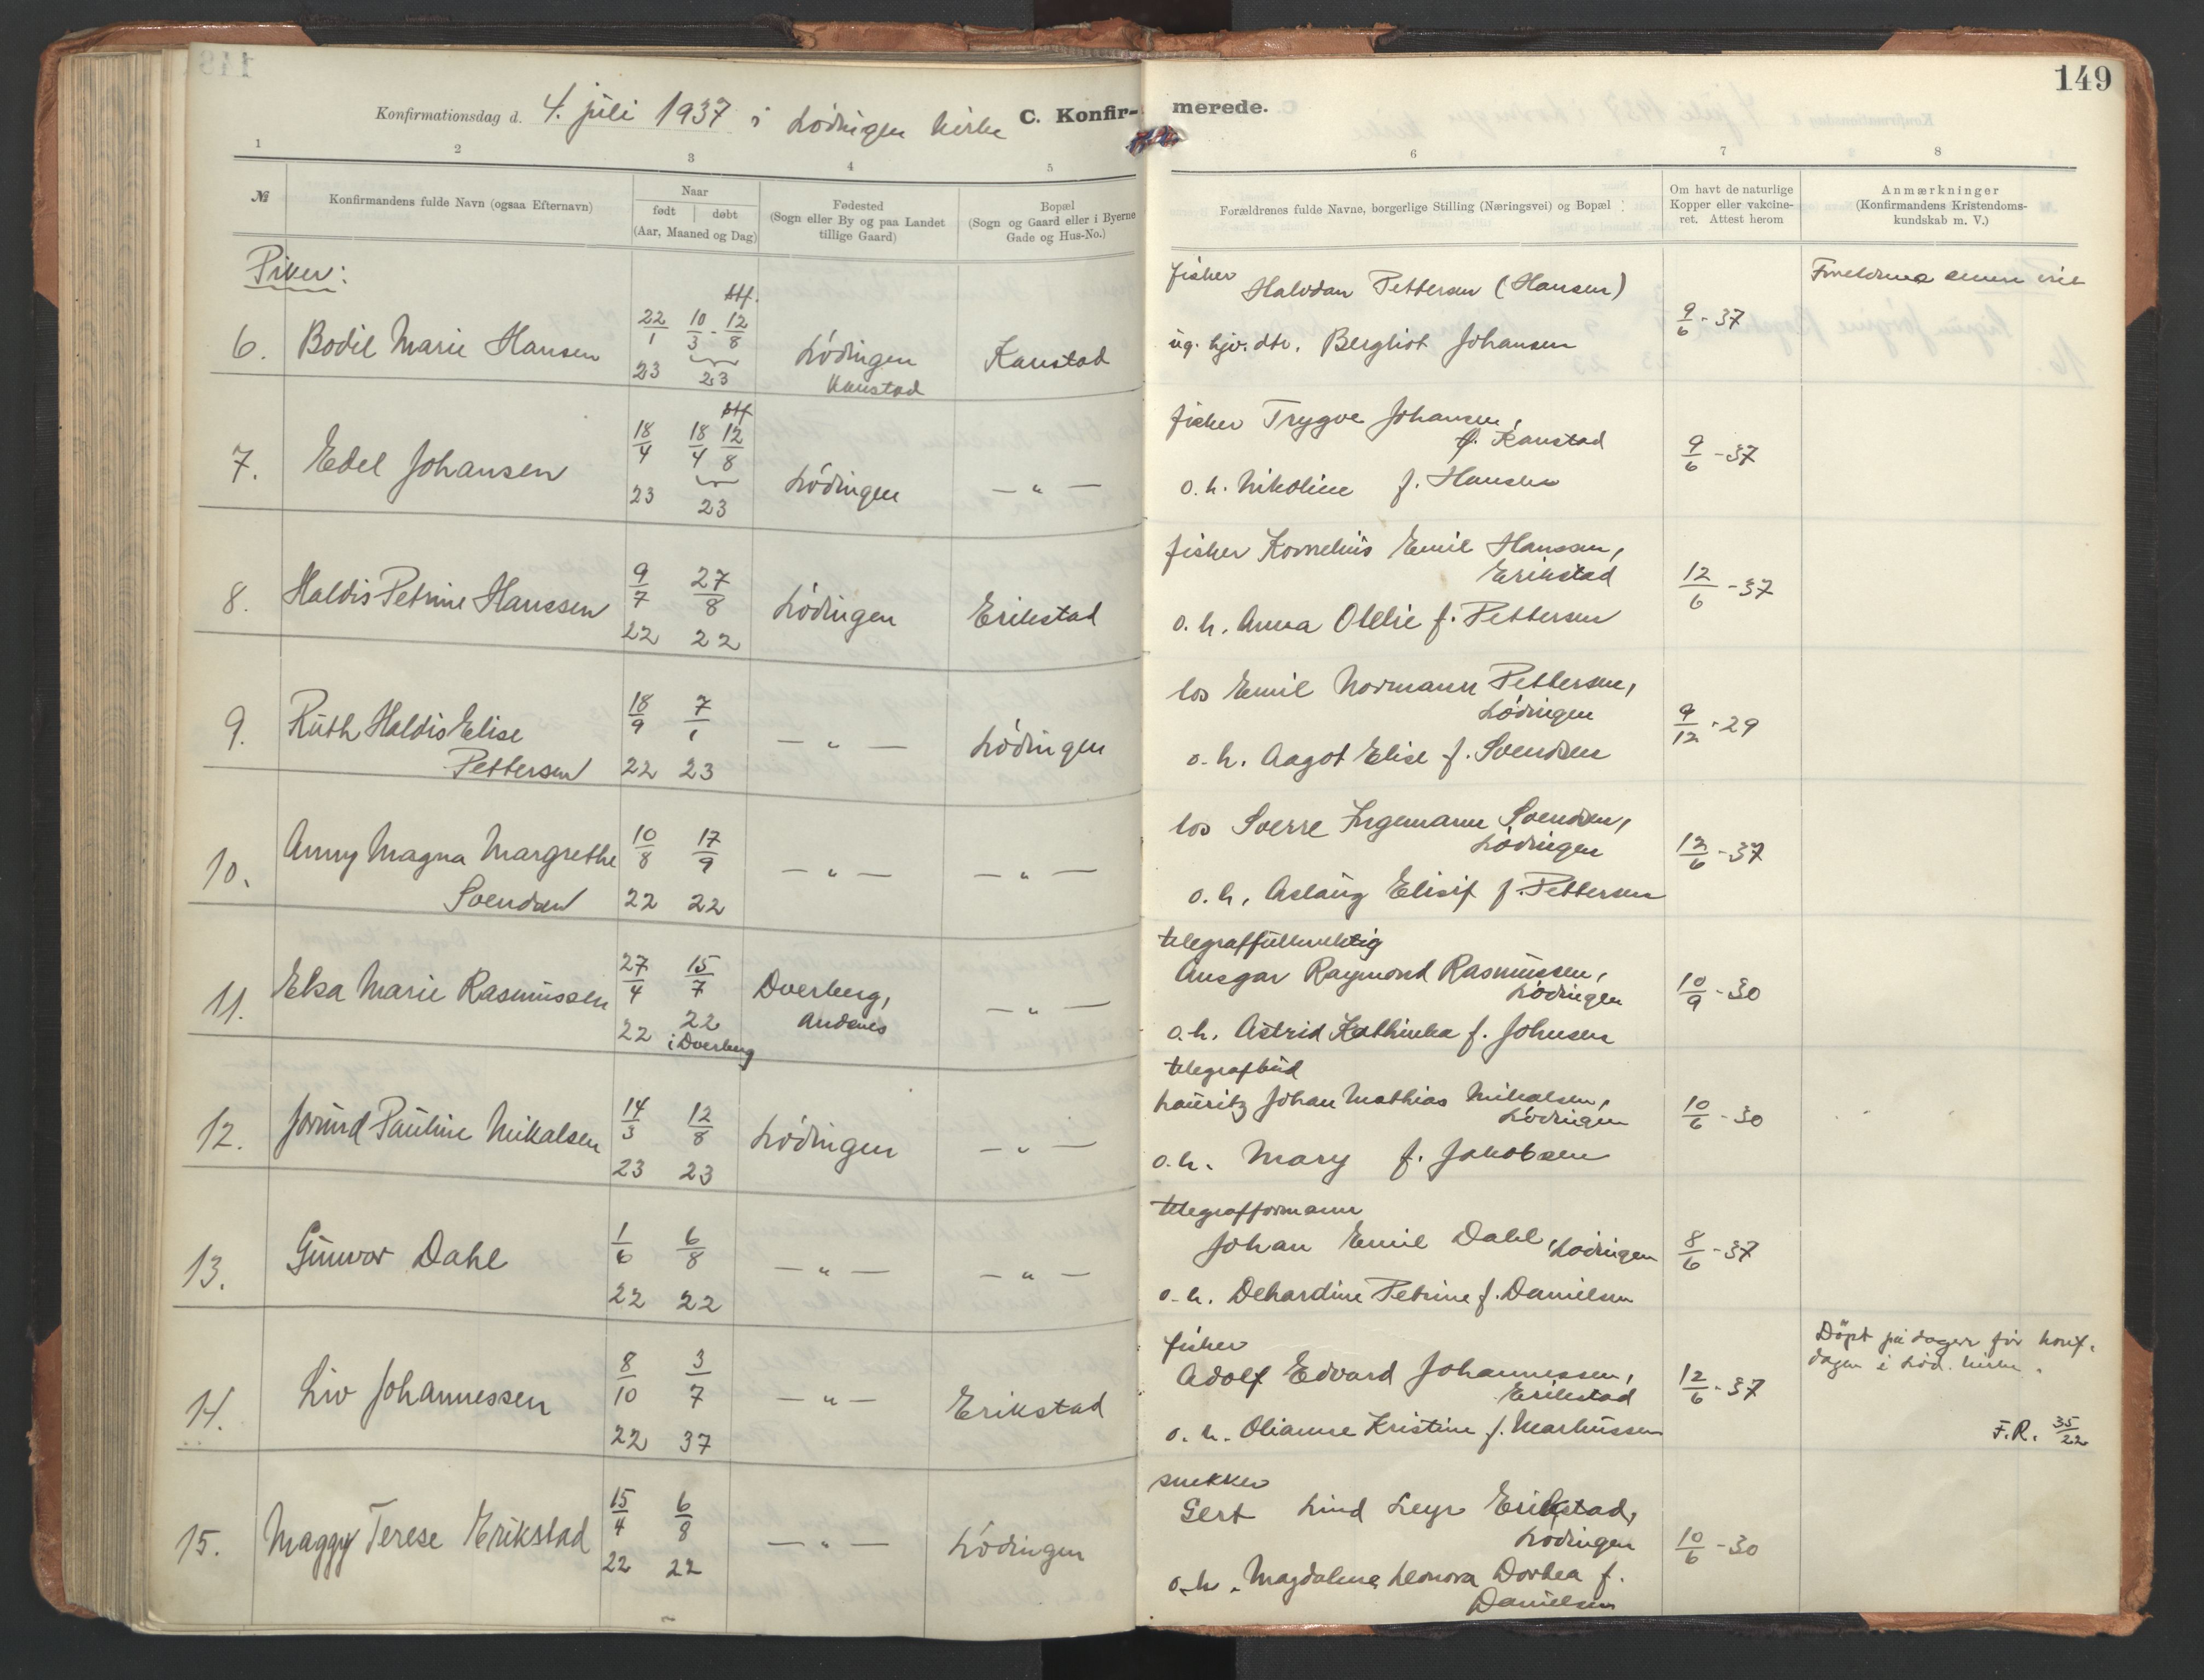 149
Konfirmationsdag d. 4. juli 1937 i Lödingen kirke C. Konfir-
merede.
1 2 3 4 5 6 7 8
№
Konfirmandens fulde Navn (ogsaa Efternavn)
Naar
født | døbt
(Aar, Maaned og Dag)
Fødested
(Sogn eller By og paa Landet
tillige Gaard)
Bopæl
(Sogn og Gaard eller i Byerne
Gade og Hus-No.)
Forældrenes fulde Navne, borgerlige Stilling (Næringsvei) og Bopæl
Om havt de naturlige
Kopper eller vakcine-
ret. Attest herom
Anmærkninger
(Konfirmandens Kristendoms-
kundskab m. V.)
Piker:
6. Bodil Marie Hansen 22/1 23 10/3 - stf. 12/8 23 Lödingen Kanstad Kanstad
fisker Halvdan Pettersen (Hansen)
ug. hjv. dtr. Bergliot Johansen
9/6 - 37
Foreldrene senere
7. Edel Johansen 18/4 23 18/4 stf. 12/8 23 Lödingen — " —
fisker Trygve Johansen,
Kanstad
o. h. Nikoline f. Hansen
9/6 - 37
8. Haldis Petrine Hanssen 9/7 22 27/8 22 Lödingen Erikstad
fisker Kornelius Emil Hanssen,
Erikstad
o. h. Anna Otelie f. Pettersen
12/6 - 37
9. Ruth Haldis Elise
Pettersen 18/9 22 7/1 23 — " — Lödingen
los Emil Normann Pettersen,
Lödingen
o. h. Aagot Elise f. Svendsen
9/12 - 29
10. Anny Magna Margrethe
Svendsen 10/8 22 17/9 22 — " — — " —
los Sverre Ingemann Svendsen,
Lödingen
o. h. Aslaug Elisif f. Pettersen
12/6 - 37
11. Elsa Marie Rasmussen 27/4 22 15/7 22 i Dverberg Dverberg, Andenes — " —
telegraffullmektig
Ansgar Raymond Rasmussen,
Lödingen
o. h. Astrid Kathinka f. Johnsen
10/9 - 30
12. Jorund Pauline Mikalsen 14/3 23 12/8 23 Lödingen — " —
telegrafbud
Lauritz Johan Mathias Mikalsen,
Lödingen
o. h. Mary f. Jakobsen
10/6 - 30
13. Gunvor Dahl 1/6 22 6/8 22 — " — — " —
telegrafformann
Johan Emil Dahl, Lödingen
o. h. Dehardine Petrine f. Danielsen
8/6 - 37
14. Liv Johannessen 8/10 22 3/7 37 — " — Erikstad
fisker
Adolf Edvard Johannessen,
Erikstad
o. h. Olianne Kristine f. Markussen
12/6 - 37
Döpt på dagen för konf.
dagen i Löd. kirke.
F. R. 35/22
15. Maggy Terese Erikstad 15/4 22 6/8 22 — " — Lödingen
snekker
Gert Lind Leyr Erikstad,
Lödingen
o. h. Magdalena Leonora Dorthea f.
Danielsen
10/6 - 30